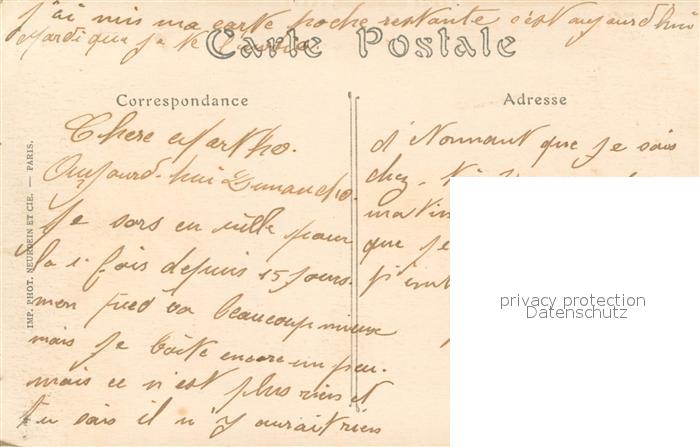 j'ai mis ma carte poche restante c'est aujourd'hui
Mardi que je te l'envoie
Carte Postale
Correspondance
Adresse
IMP. PHOT. NEURDEIN ET CIE. — PARIS.
Chère Marthe.
Aujourd-hui Dimanche.
Je sors en ville pour
la 1e fois depuis 15 jours.
mon pied va beaucoup mieux
mais je boite encore un peu.
mais ce n'est plus rien et
tu sais il n'y aurait rien
d'étonnant que je sois
chez
matin
que je
j'
privacy protection
Datenschutz